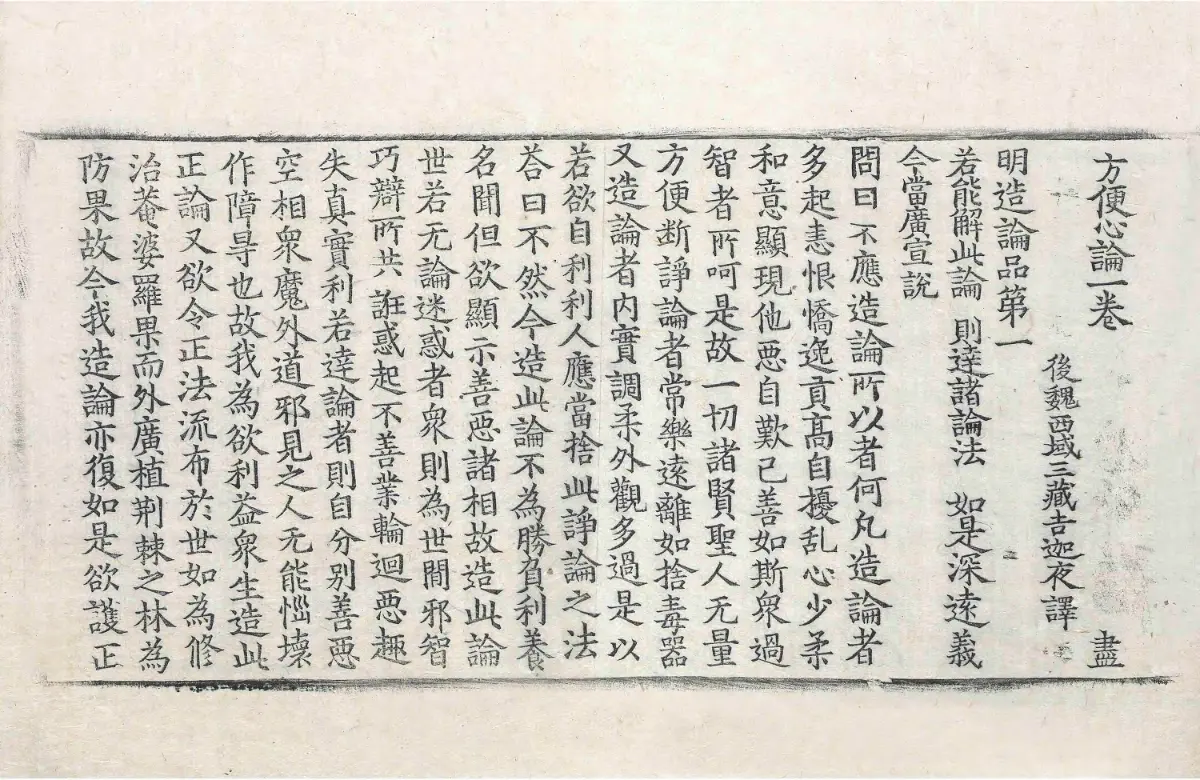 方便心論一卷 盡
後魏西域三藏吉迦夜譯
明造論品第一
若能解此論 則達諸論法 如是深遠義
今當廣宣說
問曰不應造論所以者何凡造論者
多起恚恨憍逸貢高自擾乱心少柔
和意顯現他惡自歎己善如斯衆過
智者所呵是故一切諸賢聖人无量
方便断諍論者常樂遠離如捨毒器
又造論者內實調柔外觀多過是以
若欲自利利人應當捨此諍論之法
荅曰不然今造此論不為勝負利養
名聞但欲顯示善惡諸相故造此論
世若无論迷惑者衆則為世間邪智
巧辯所共誑惑起不善業輪迴惡趣
失真實利若達論者則自分別善惡
空相衆魔外道邪見之人无能惱壞
作障㝵也故我為欲利益衆生造此
正論又欲令正法流布於世如為修
治菴婆羅果而外廣植荆棘之林為
防果故今我造論亦復如是欲護正